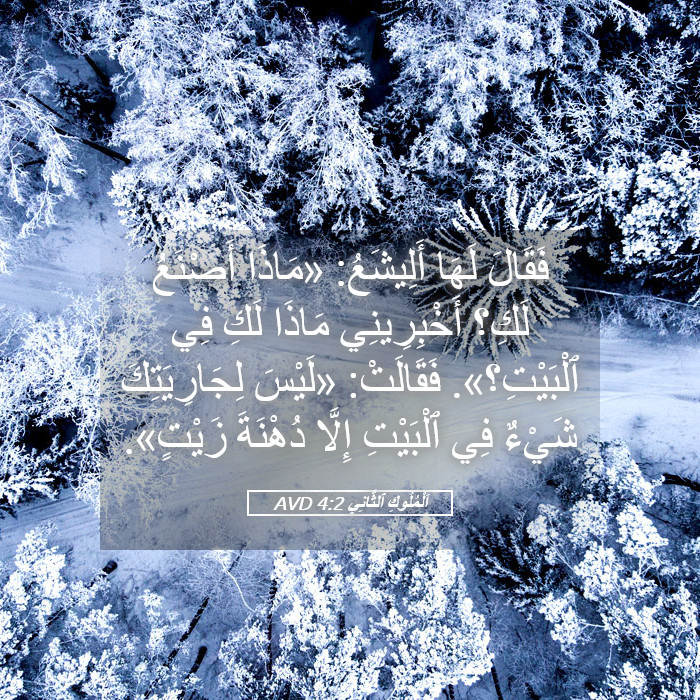 فَقَالَ لَهَا أَلِيشَعُ: «مَاذَا أَصْنَعُ
لَكِ؟ أَخْبِرِينِي مَاذَا لَكِ فِي
ٱلْبَيْتِ؟». فَقَالَتْ: «لَيْسَ لِجَارِيَتِكَ
شَيْءٌ فِي ٱلْبَيْتِ إِلَّا دُهْنَةَ زَيْتٍ».
اَلْمُلُوكِ ٱلثَّانِي 4:2 AVD